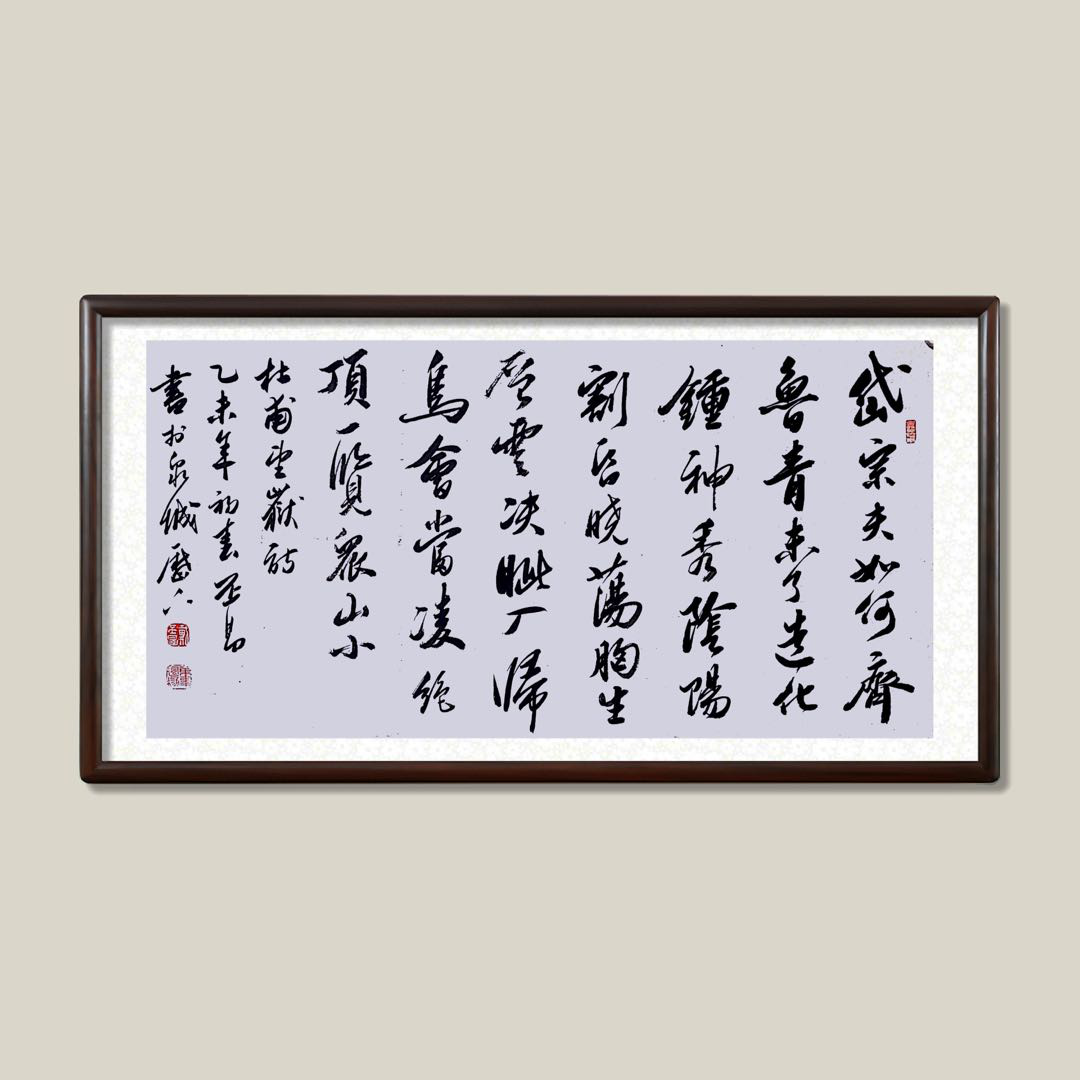 岱宗夫如何齊
魯青未了造化
鍾神秀陰陽
割昏曉蕩胸生
層雲決眦入歸
鳥會當凌絕
頂一覽眾山小
杜甫望嶽詩
乙未年初春
書於泉城歷下